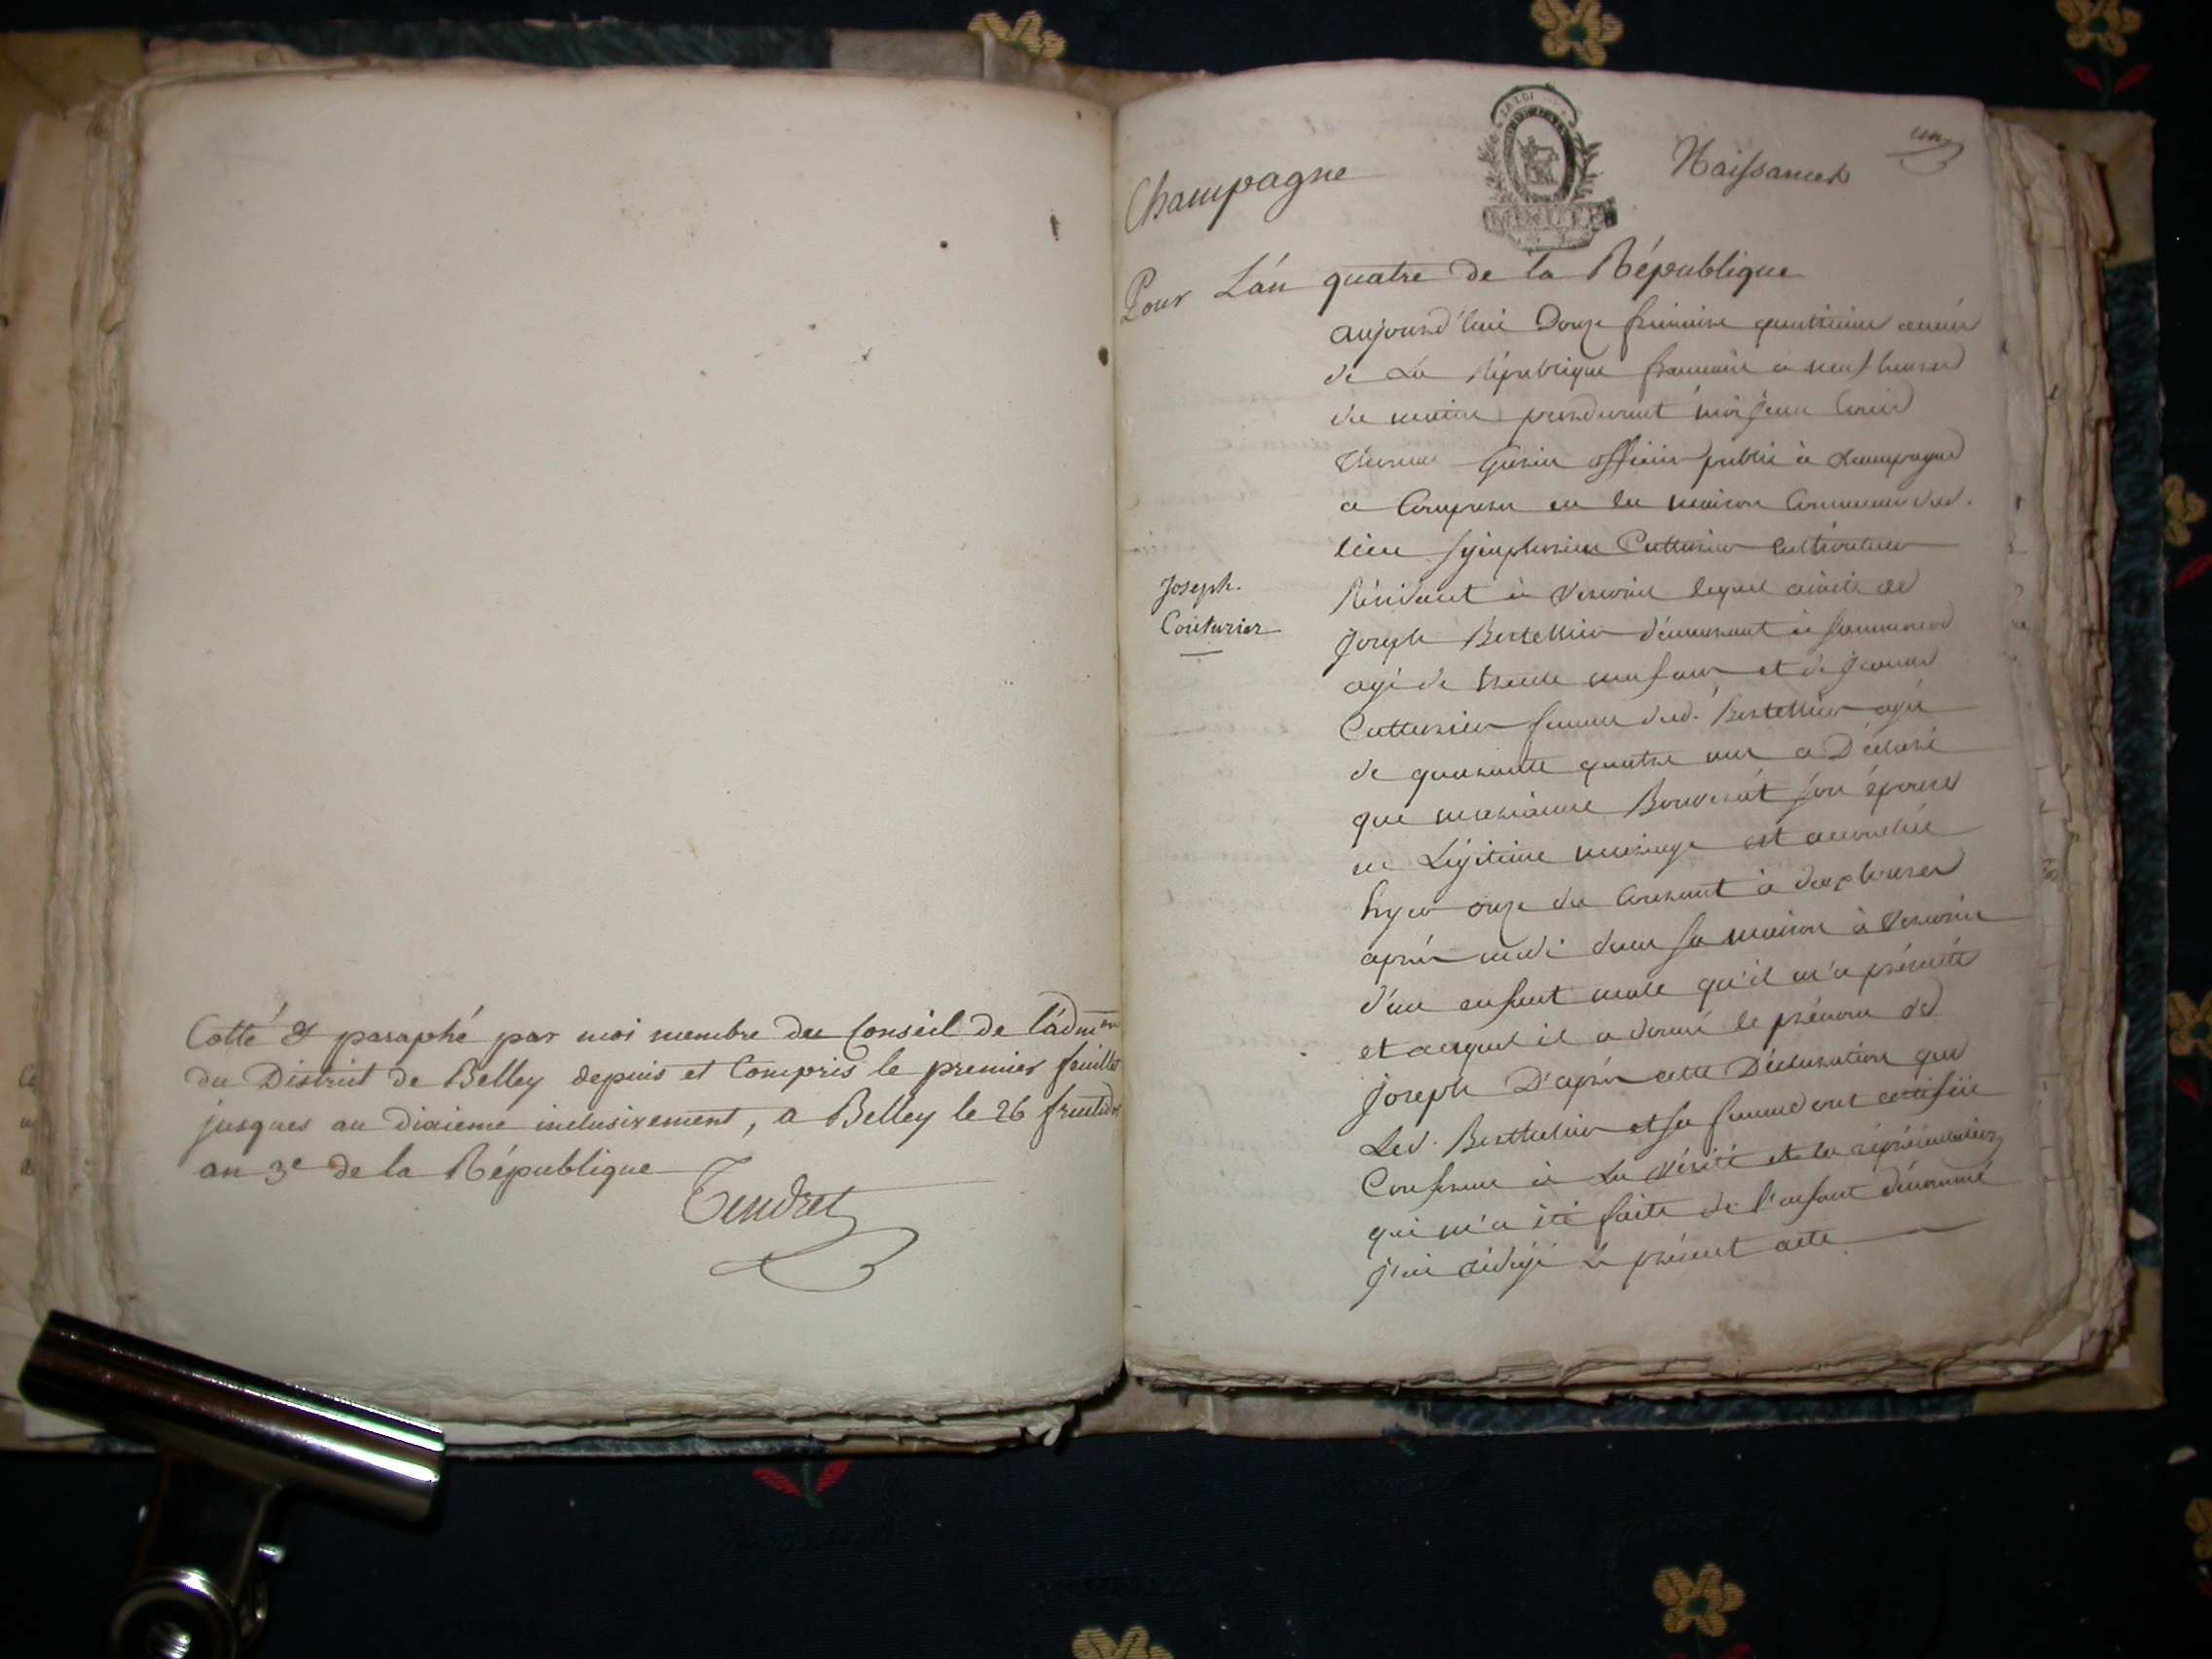 Cotté & paraphé par moi membre du Conseil de l'ádmon
du District de Belley depuis et Compris le premier feuillet
jusques au dixieme inclusivement, a Belley le 26 fructidor
an 3e de la République
Tendret
un
Champagne
Naissances
LA LOI
MINUTE
Pour L'án quatre de la République
aujourd'hui Douze frimaire quatrieme année
de La République francaise à neuf heures
du matin pardevant moi Jean Louis
officier public à champagne
a Comparu en la maison Commune dud.
lieu Symphorien Cutturier cultivateur
Joseph.
Couturier
Résidant à lequel assisté de
Joseph Bertellier démeurant à
agé de trente neuf ans et de Jeanne
Cutturier femme dud. Bertellier agée
de quarante quatre ans a Déclaré
que marianne son épouse
en Légitime mariage est accouchée
hyer onze du Courant à deux heures
aprés midi dans sa maison à
d'un enfant male qu'il m'a présenté
et auquel il a donné le prénom de
Joseph D'aprés cette Déclaration que
Led. Berthelier et sa femme ont certifiée
Conforme à La vérité et la représentation
qui m'a été faite de l'enfant dénommé
j'ai rédigé Le présent acte